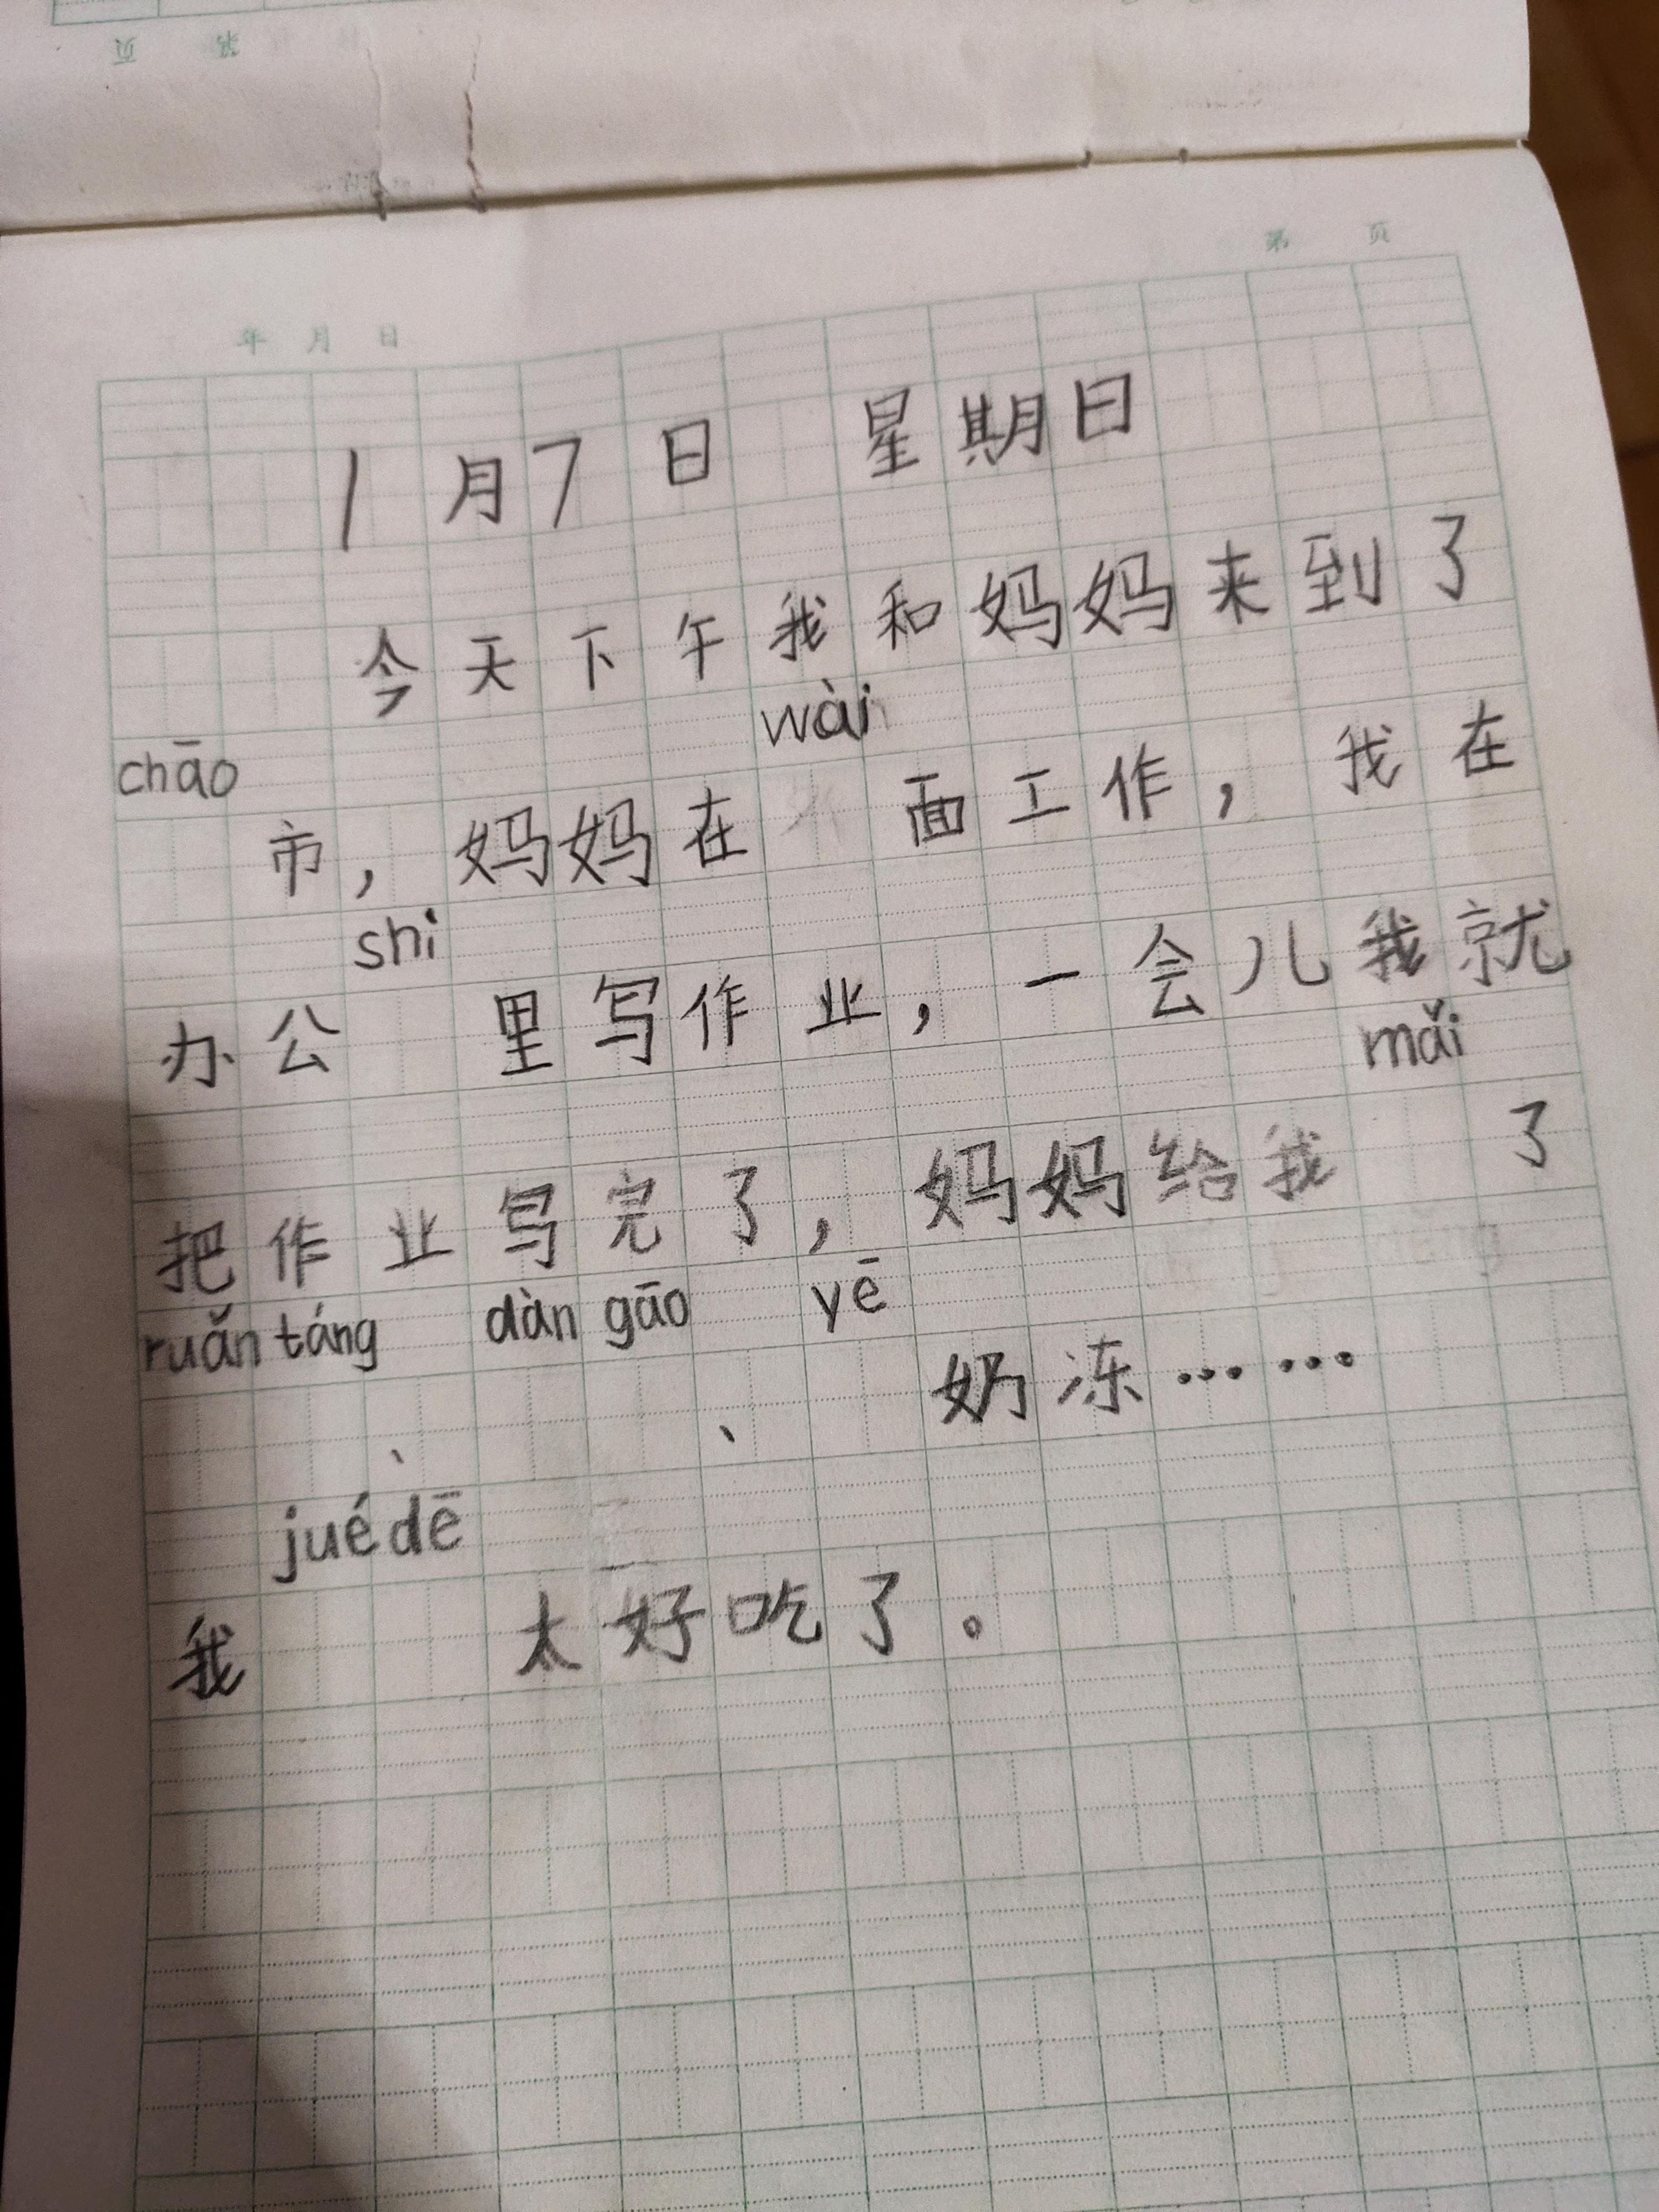 页 第
第 页
年 月 日
1月7日 星期日
今天下午我和妈妈来到了
chāo wài
市，妈妈在 面工作，我在
shi
办公 里写作业，一会儿我就
mǎi
把作业写完了，妈妈给我 了
ruǎn táng dàn gāo yē
、 、 奶冻……
jué dē
我 太好吃了。